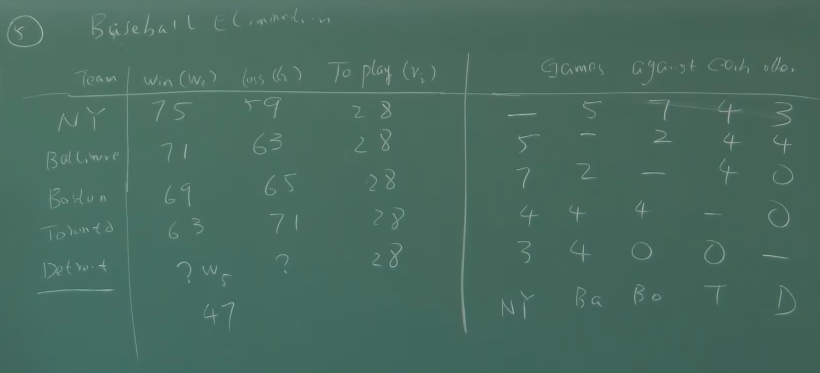 5 Baseball Elimination
Team win (wᵢ) loss (lᵢ) To play (rᵢ) Games against each other
NY 75 59 28 — 5 7 4 3
Baltimore 71 63 28 5 – 2 4 4
Boston 69 65 28 7 2 — 4 0
Toronto 63 71 28 4 4 4 – 0
Detroit ? w₅ ? 28 3 4 0 0 —
47 NY Ba Bo T D